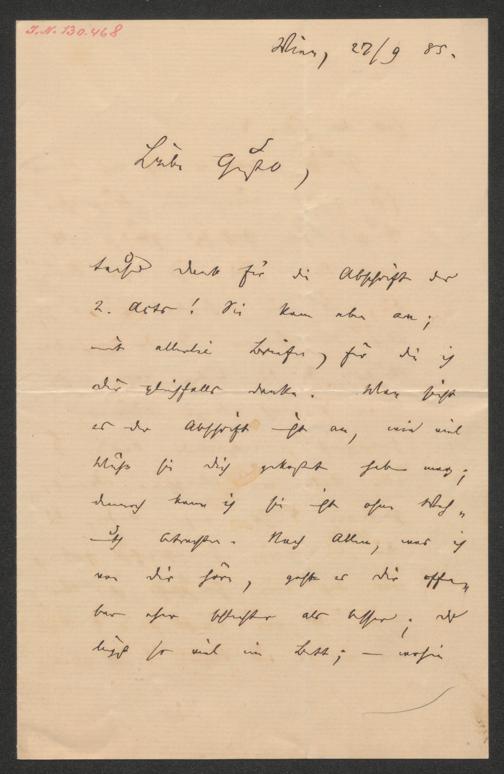 J.N. 130.468
Wien, 27/9 85.
Liebe Gusto,
tausend Dank für die Abschrift des
2. Acts! Sie kam eben an;
mit allerlei Briefen, für die ich
dir gleichfalls danke. Man sieht
es der Abschrift nicht an, wie viel
Mühe sie dich gekostet haben mag;
dennoch kann ich sie nicht ohne Weh-
muth betrachten. Nach Allem, was ich
von dir höre, geht es dir offen-
bar eher schlechter als besser; du
liegst so viel im Bett; —